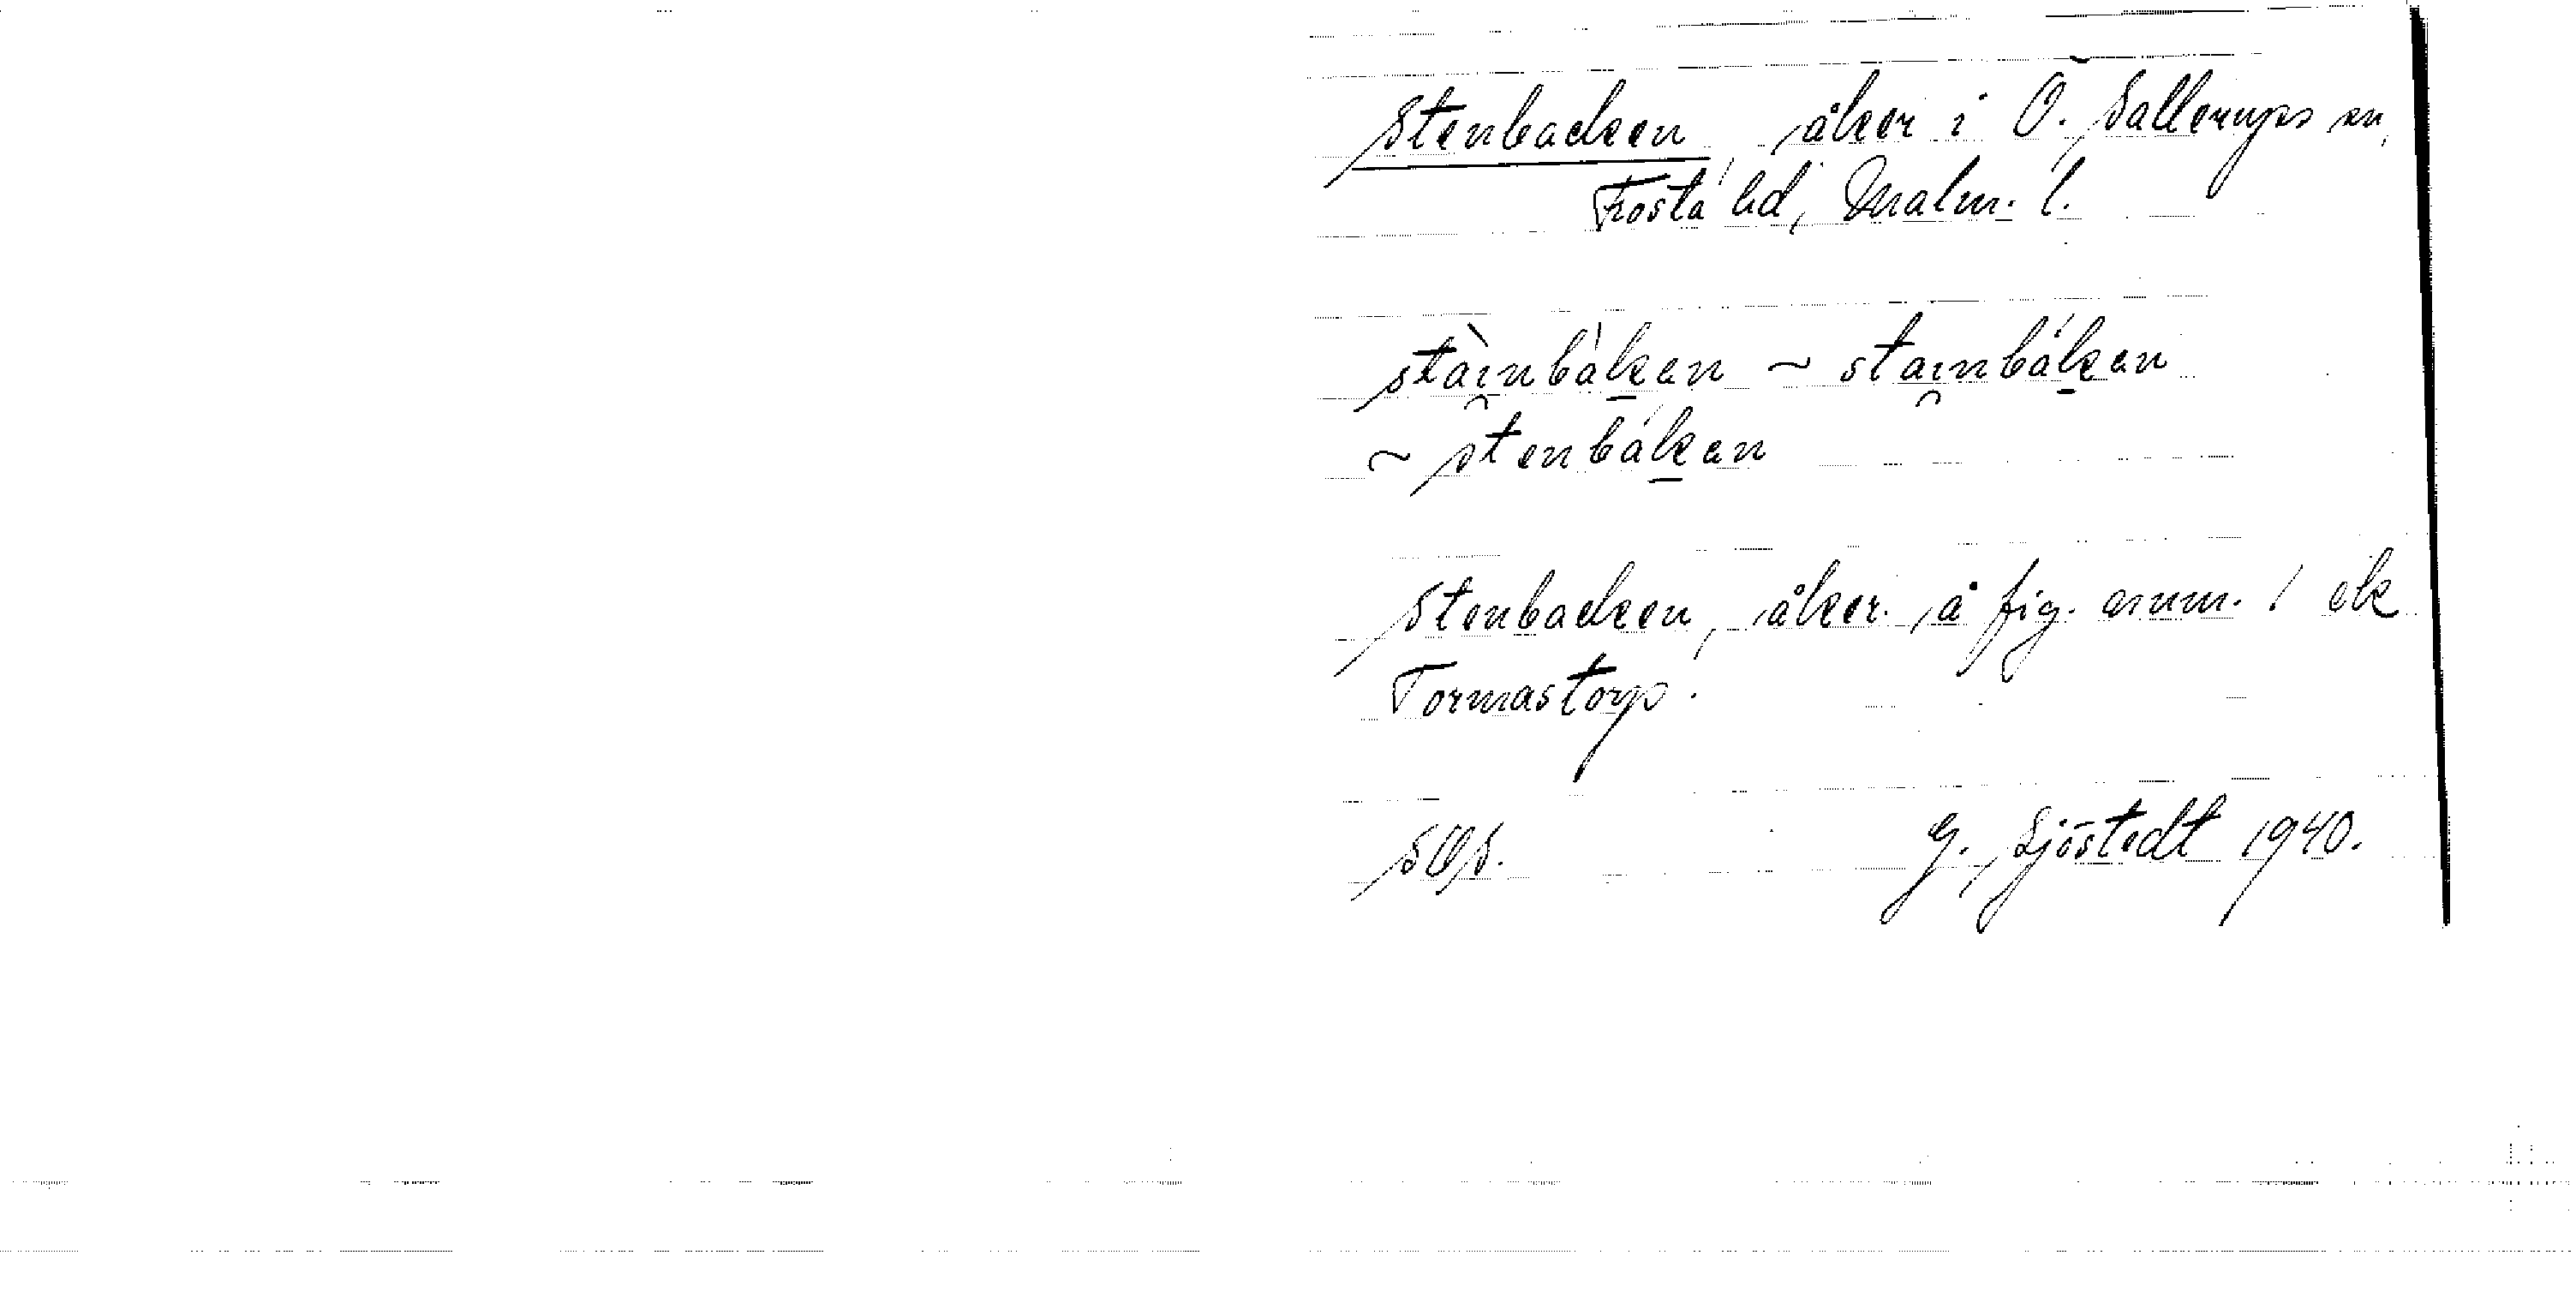 Stenbacken, åker i Ö. Sallerups sn,
Frosta hd, Malm. l.
stàı̯nbàk̠an ~ staı̯nbák̠an
~ stenbák̠an
Stenbacken, åker å fig. omm. 1 ek
Tormastorp.
SOS. G. Sjöstedt 1940.